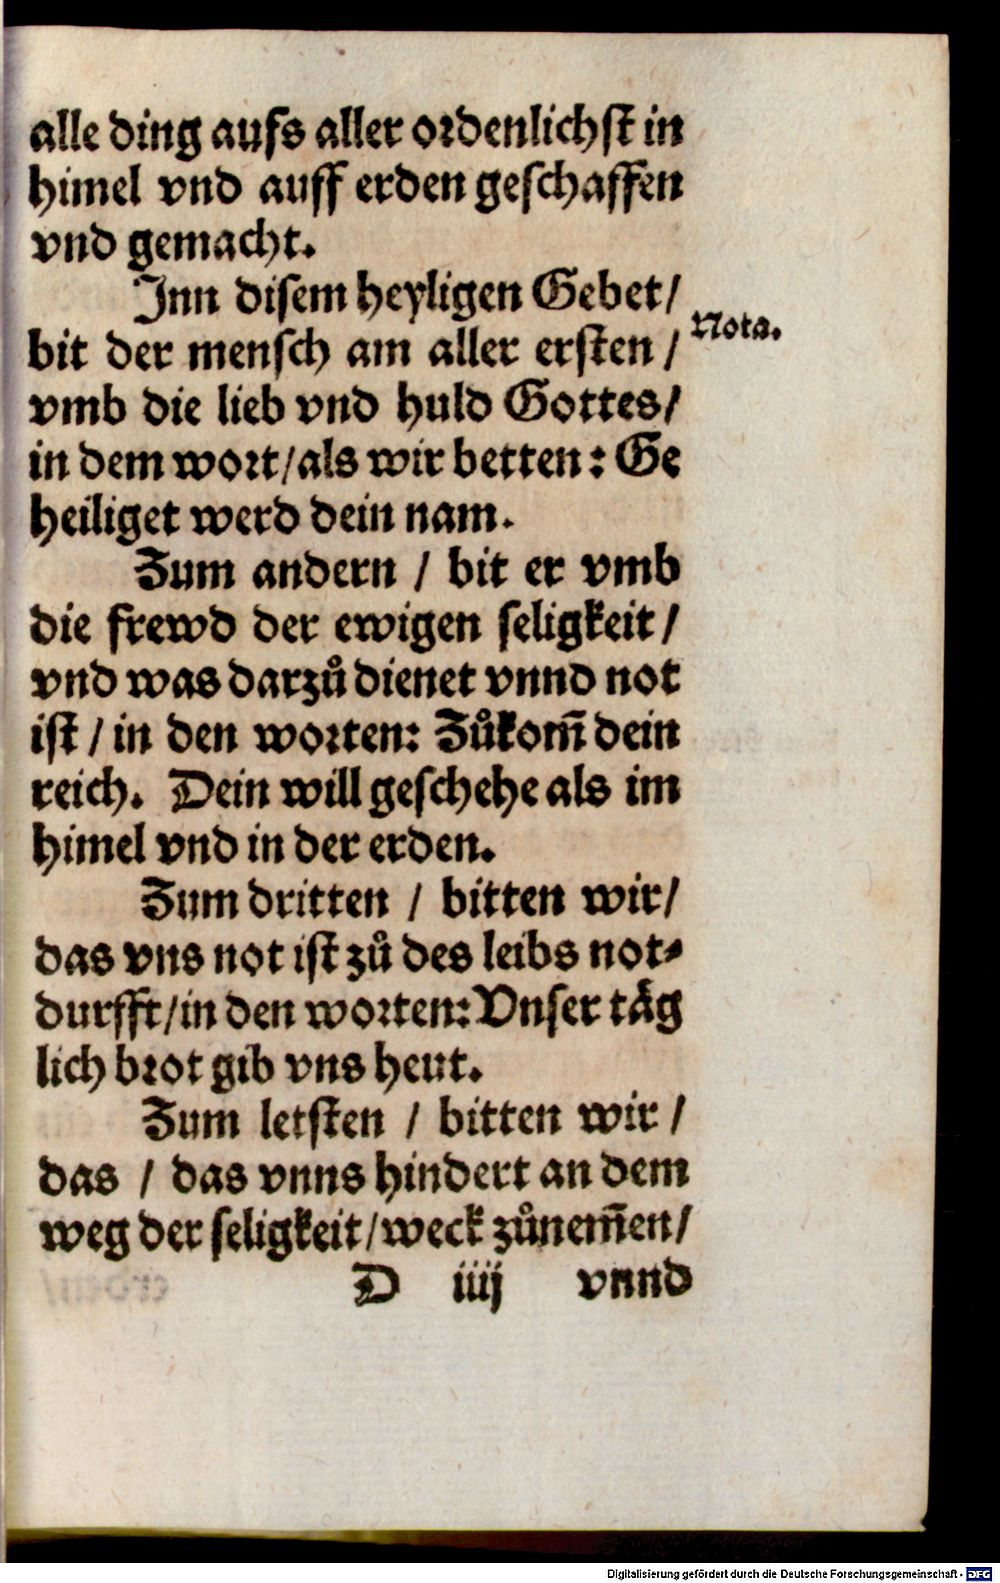 alle ding aufs aller ordenlichst in
himel vnd auff erden geschaffen
vnd gemacht.
Jnn disem heyligen Gebet/
Nota.
bit der mensch am aller ersten /
vmb die lieb vnd huld Gottes/
in dem wort/als wir betten: Ge
heiliget werd dein nam.
Zum andern / bit er vmb
die frewd der ewigen seligkeit/
vnd was darzů dienet vnnd not
ist / in den worten: Zůkom̃ dein
reich. Dein will geschehe als im
himel vnd in der erden.
Zum dritten / bitten wir/
das vns not ist zů des leibs not⸗
durfft/in den worten: Vnser täg
lich brot gib vns heut.
Zum letsten / bitten wir /
das / das vnns hindert an dem
weg der seligkeit/weck zůnem̃en/
D iiij vnnd
Digitalisierung gefördert durch die Deutsche Forschungsgemeinschaft - DFG